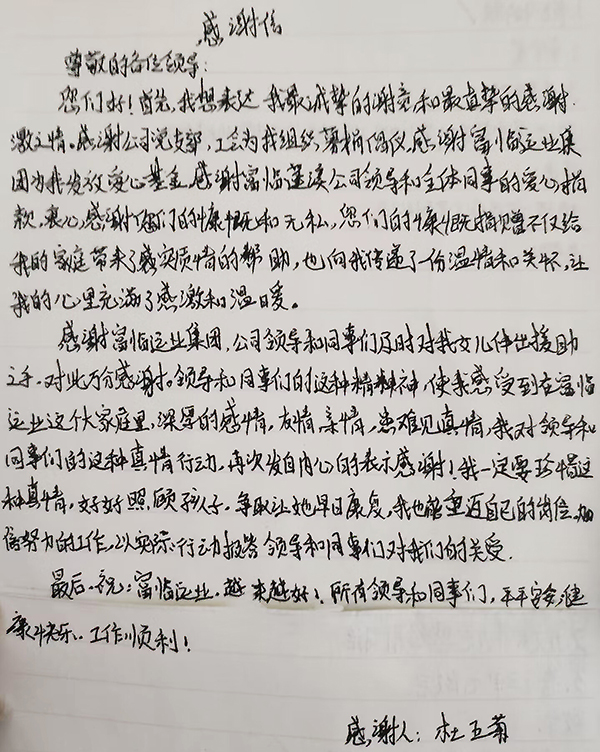 感谢信
尊敬的各位领导:
您们好!首先,我想表达我最诚挚的谢意和最真挚的感谢
激之情。感谢公司党支部,工会为我组织募捐倡仪,感谢富临运业集
团为我发放爱心基金,感谢富临蓬溪公司领导和全体同事的爱心捐
款,衷心感谢你们的慷慨和无私,您们的慷慨捐赠不仅给
我的家庭带来了实质情的帮助,也向我传递了一份温情和关怀,让
我的心里充满了感激和温暖。
感谢富临运业集团,公司领导和同事们及时对我女儿伸出援助
之手,对此万分感谢。领导和同事们的这种精神,使我感受到在富临
运业这个大家庭里,深厚的感情,友情,亲情,患难见真情,我对领导和
同事们的这种真情行动,再次发自内心的表示感谢!我一定要珍惜这
种真情,好好照顾孩子,争取让她早日康复,我也能重返自己的岗位,加
倍努力的工作,以实际行动报答领导和同事们对我们的关爱.
最后,祝:富临运业,越来越好!所有领导和同事们,平平安安,健
康快乐、工作顺利!
感谢人:杜玉菊